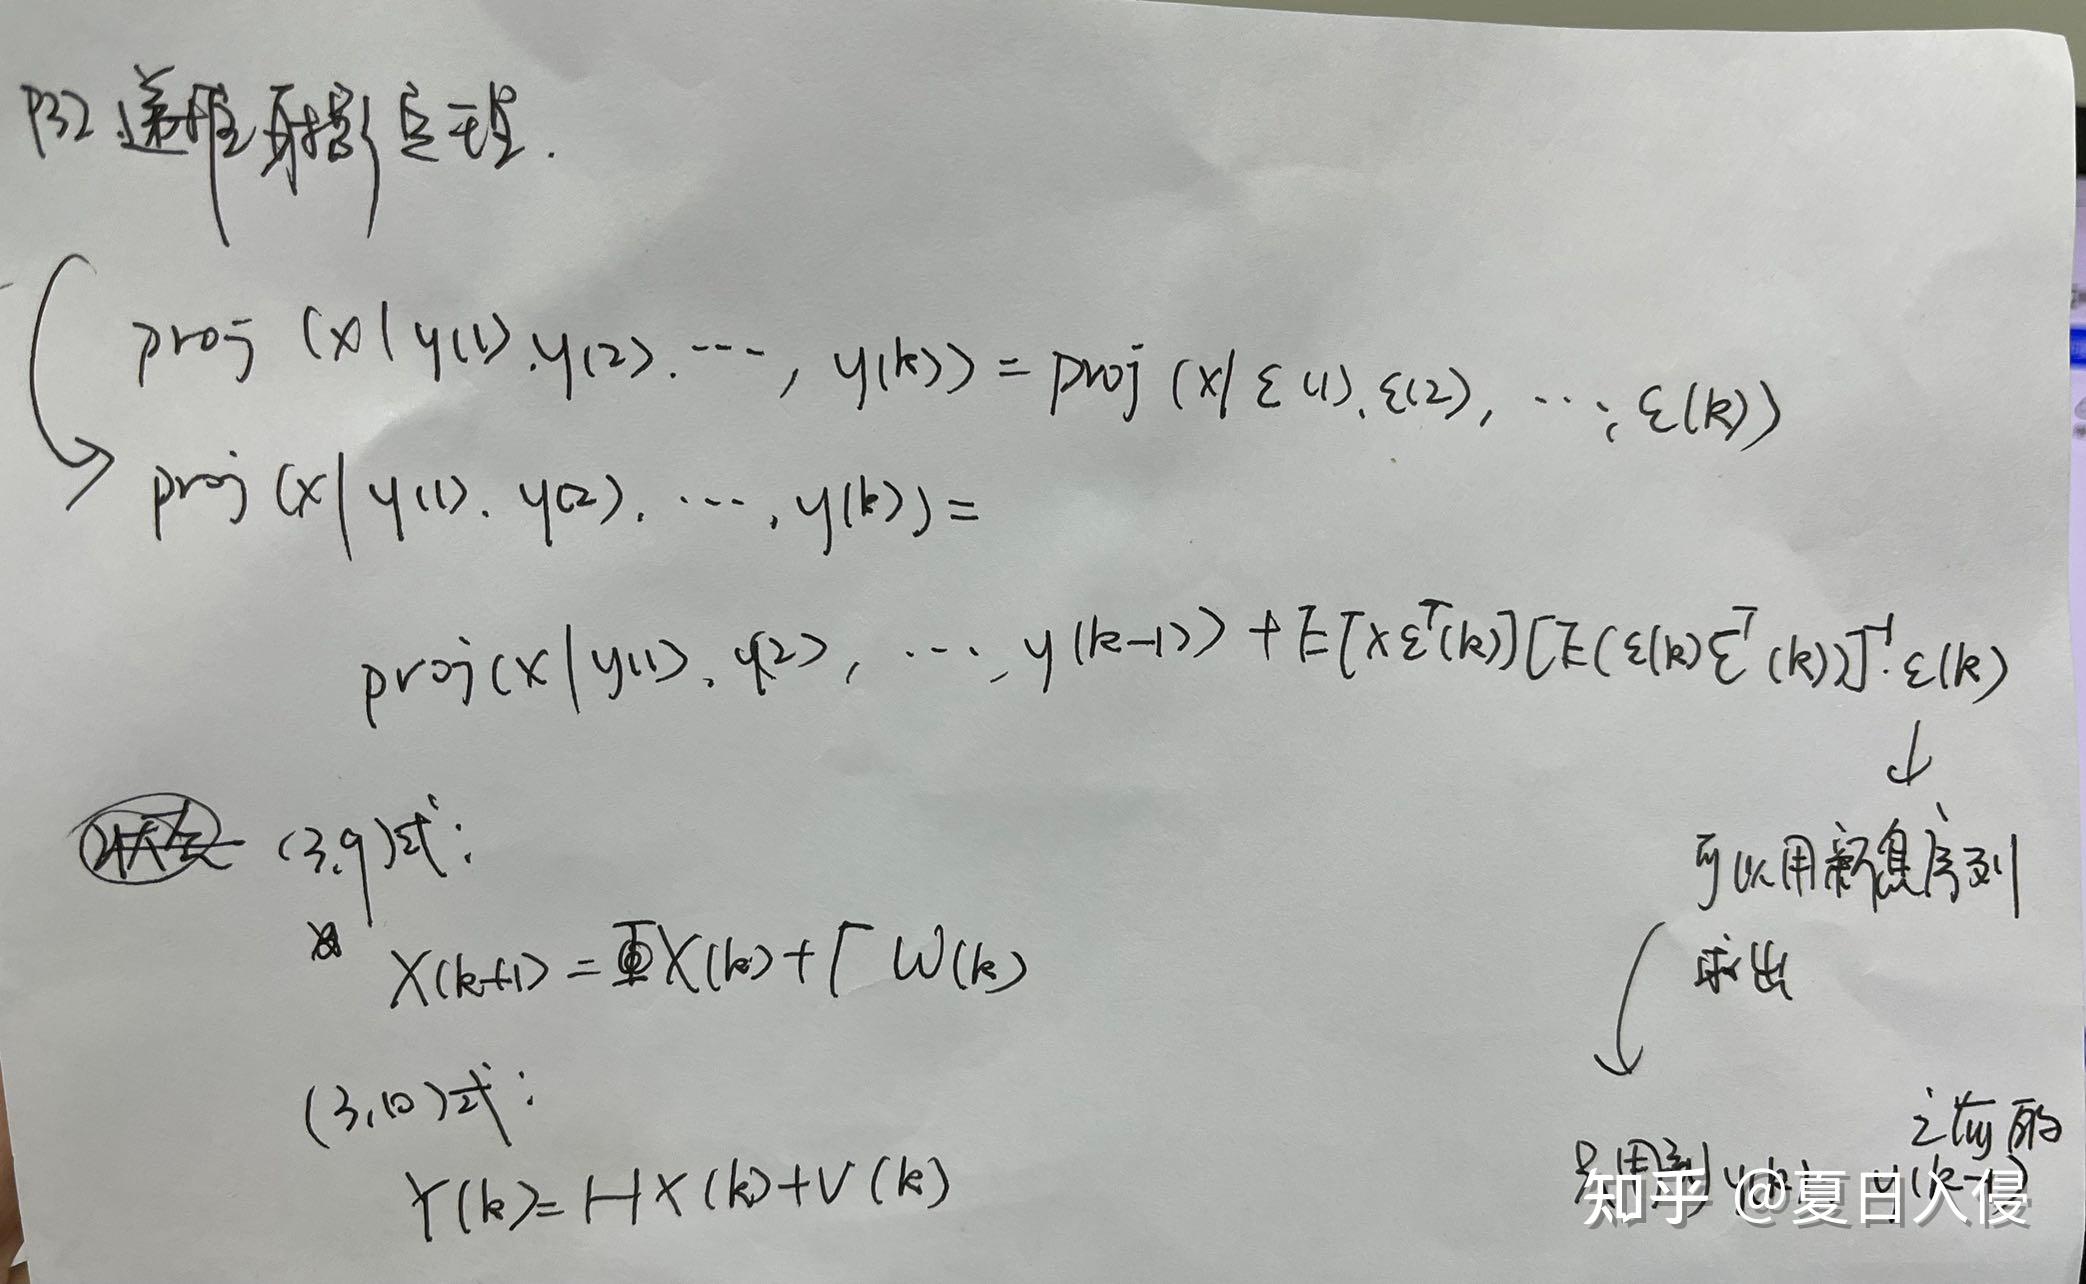 P32 递推射影定理.
proj (x | y(1), y(2), ⋯, y(k)) = proj (x | ε(1), ε(2), ⋯, ε(k))
proj (x | y(1), y(2), ⋯, y(k)) =
proj (x | y(1), y(2), ⋯, y(k-1)) + E[xεᵀ(k)][E(ε(k)εᵀ(k))]⁻¹·ε(k)
↓
可以用新息序列
求出
(3.9)式:
X(k+1) = ΦX(k) + ΓW(k)
(3.10)式:
Y(k) = HX(k) + V(k)
之前的
只用到y(k), y(k-1)
知乎 @夏日入侵